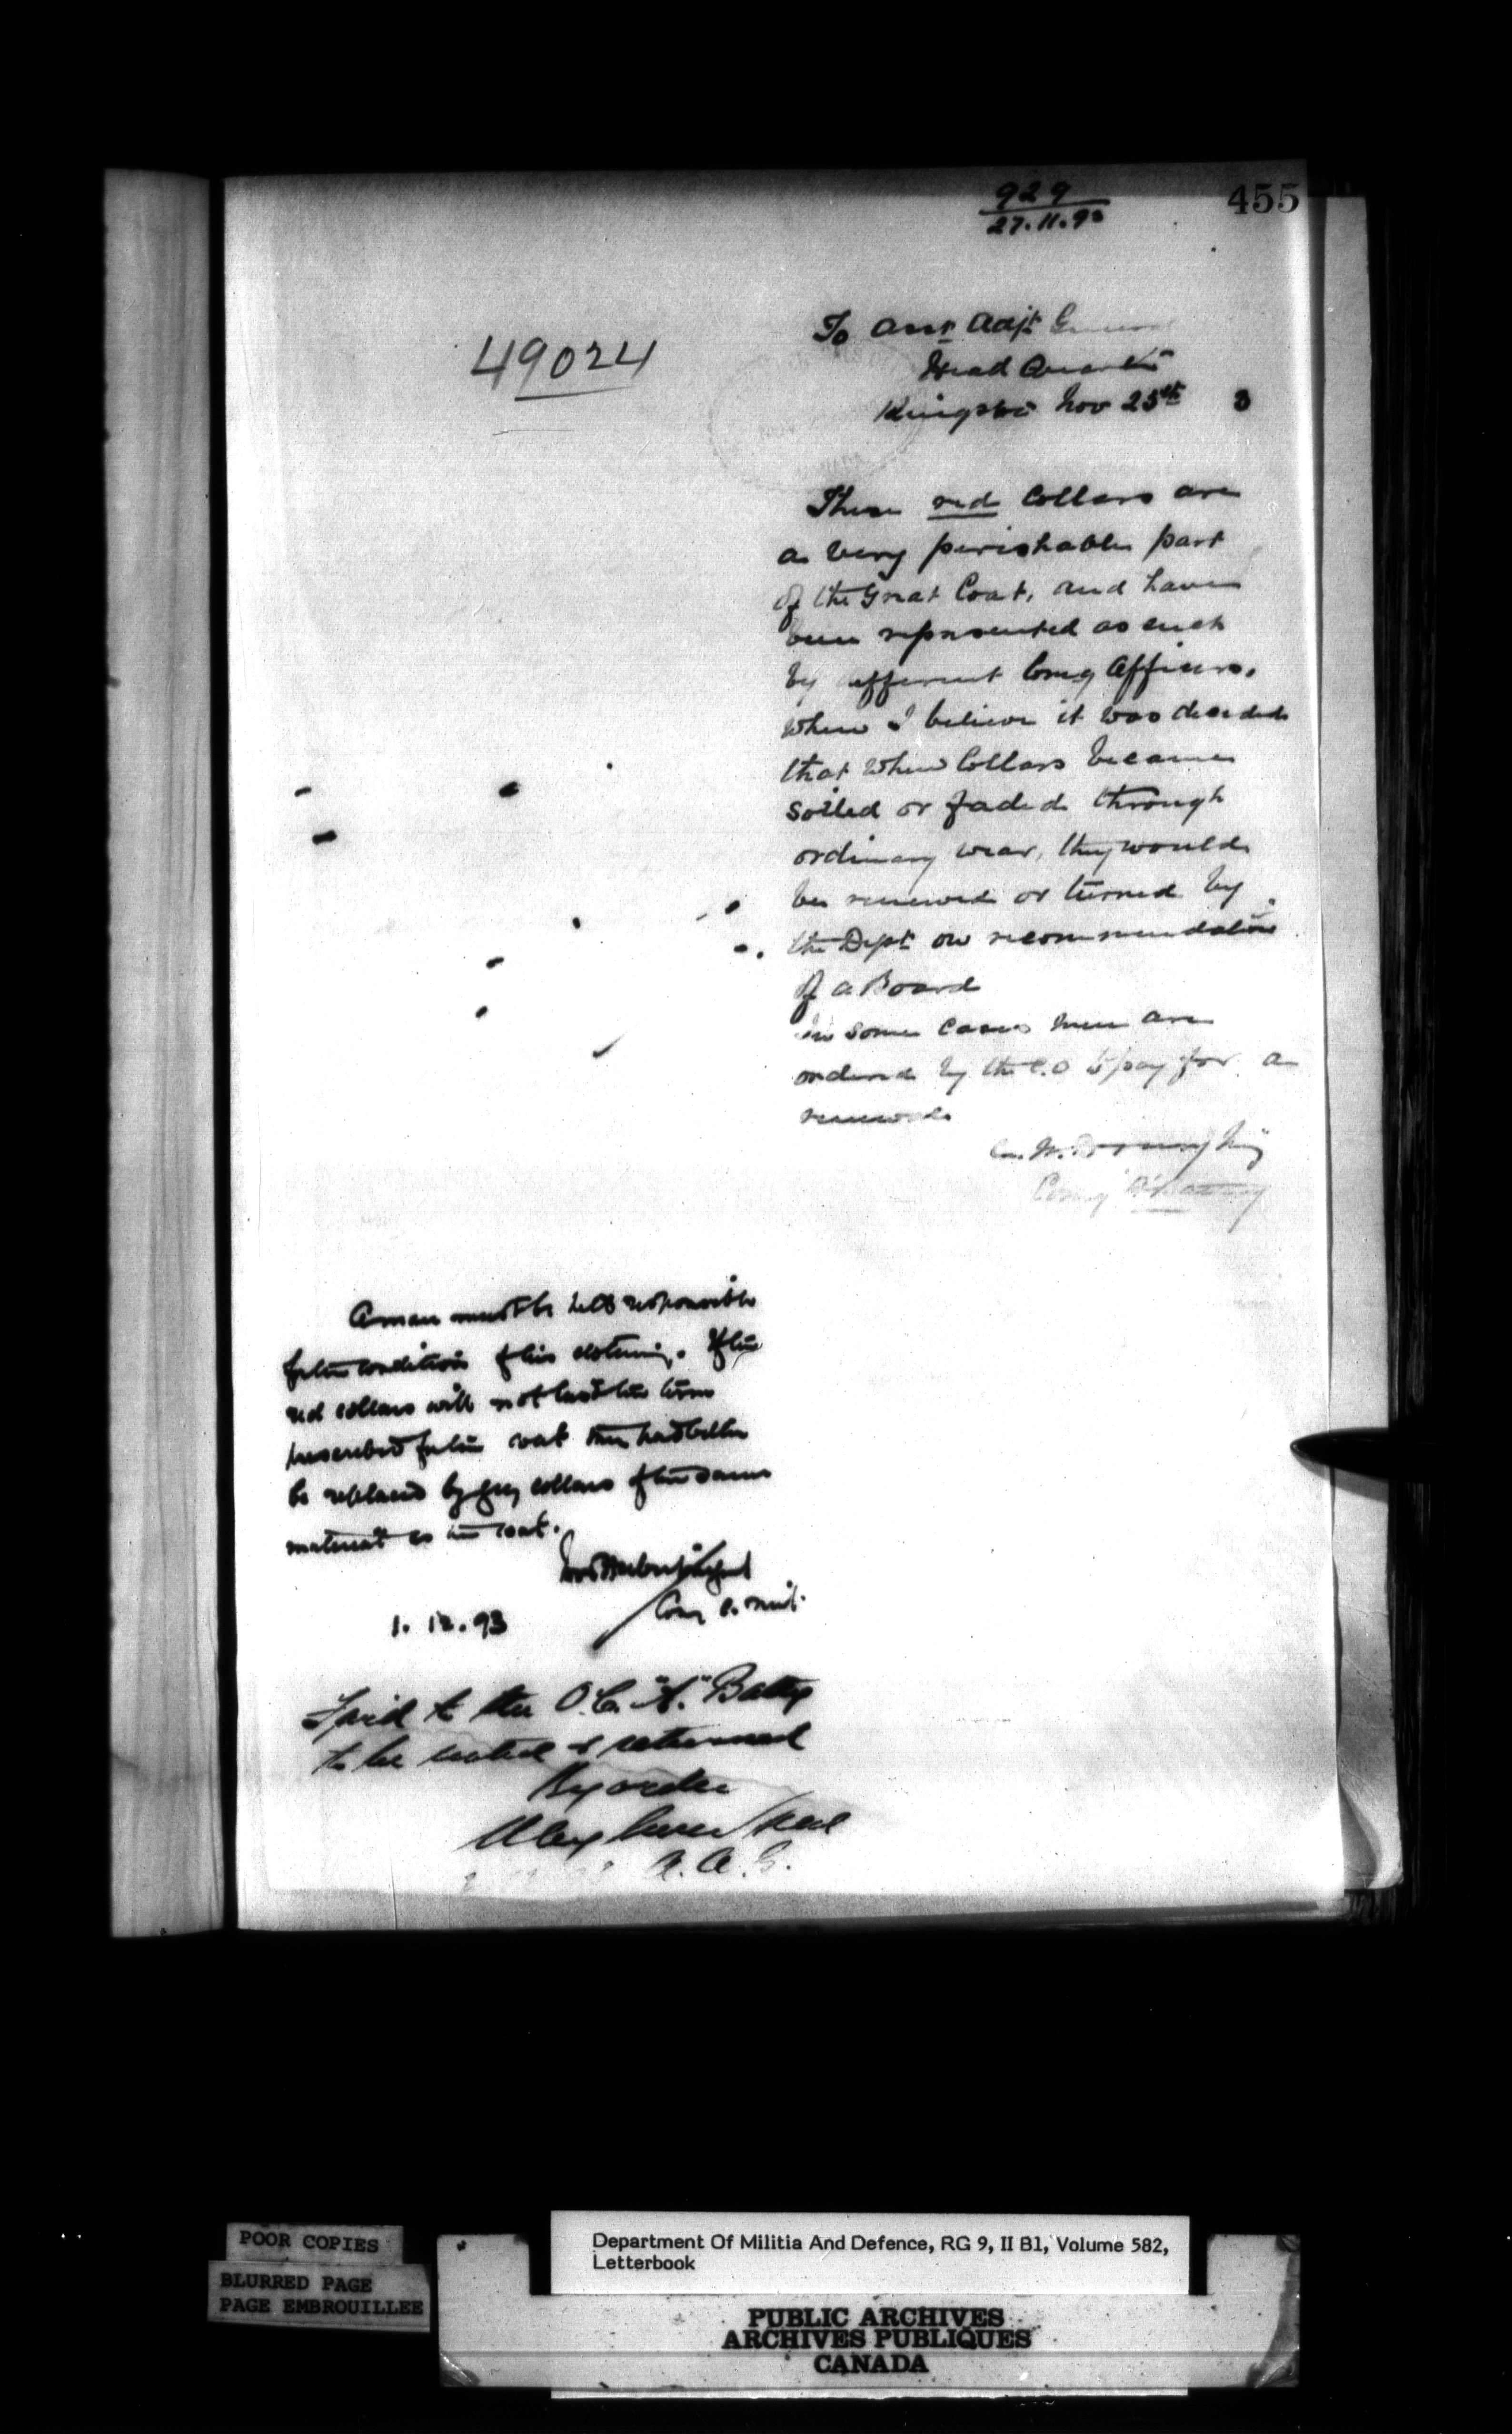 929
27.11.93
455
49024
To Asst Adjt General
Head Quarters
Kingston Nov 25th 3
These red Collars are
a very perishable part
of the Great Coat, and have
been represented as such
by different Comg Officers,
when I believe it was decided
that when Collars became
soiled or faded through
ordinary wear, they would
be renewed or turned by
the Dept on recommendation
of a Board
In some cases men are
ordered by the C.O to pay for a
renewal
Comg "A" Battery
A man must be held responsible
for the condition of his clothing. If the
red collars will not last the term
prescribed for the coat they had better
be replaced by grey collars of the same
material as the coat.
1.12.93
Fwd to the O.C. "A." Batty
to be noted & returned
By order
A.A.G.
POOR COPIES
BLURRED PAGE
PAGE EMBROUILLEE
Department Of Militia And Defence, RG 9, II B1, Volume 582,
Letterbook
PUBLIC ARCHIVES
ARCHIVES PUBLIQUES
CANADA